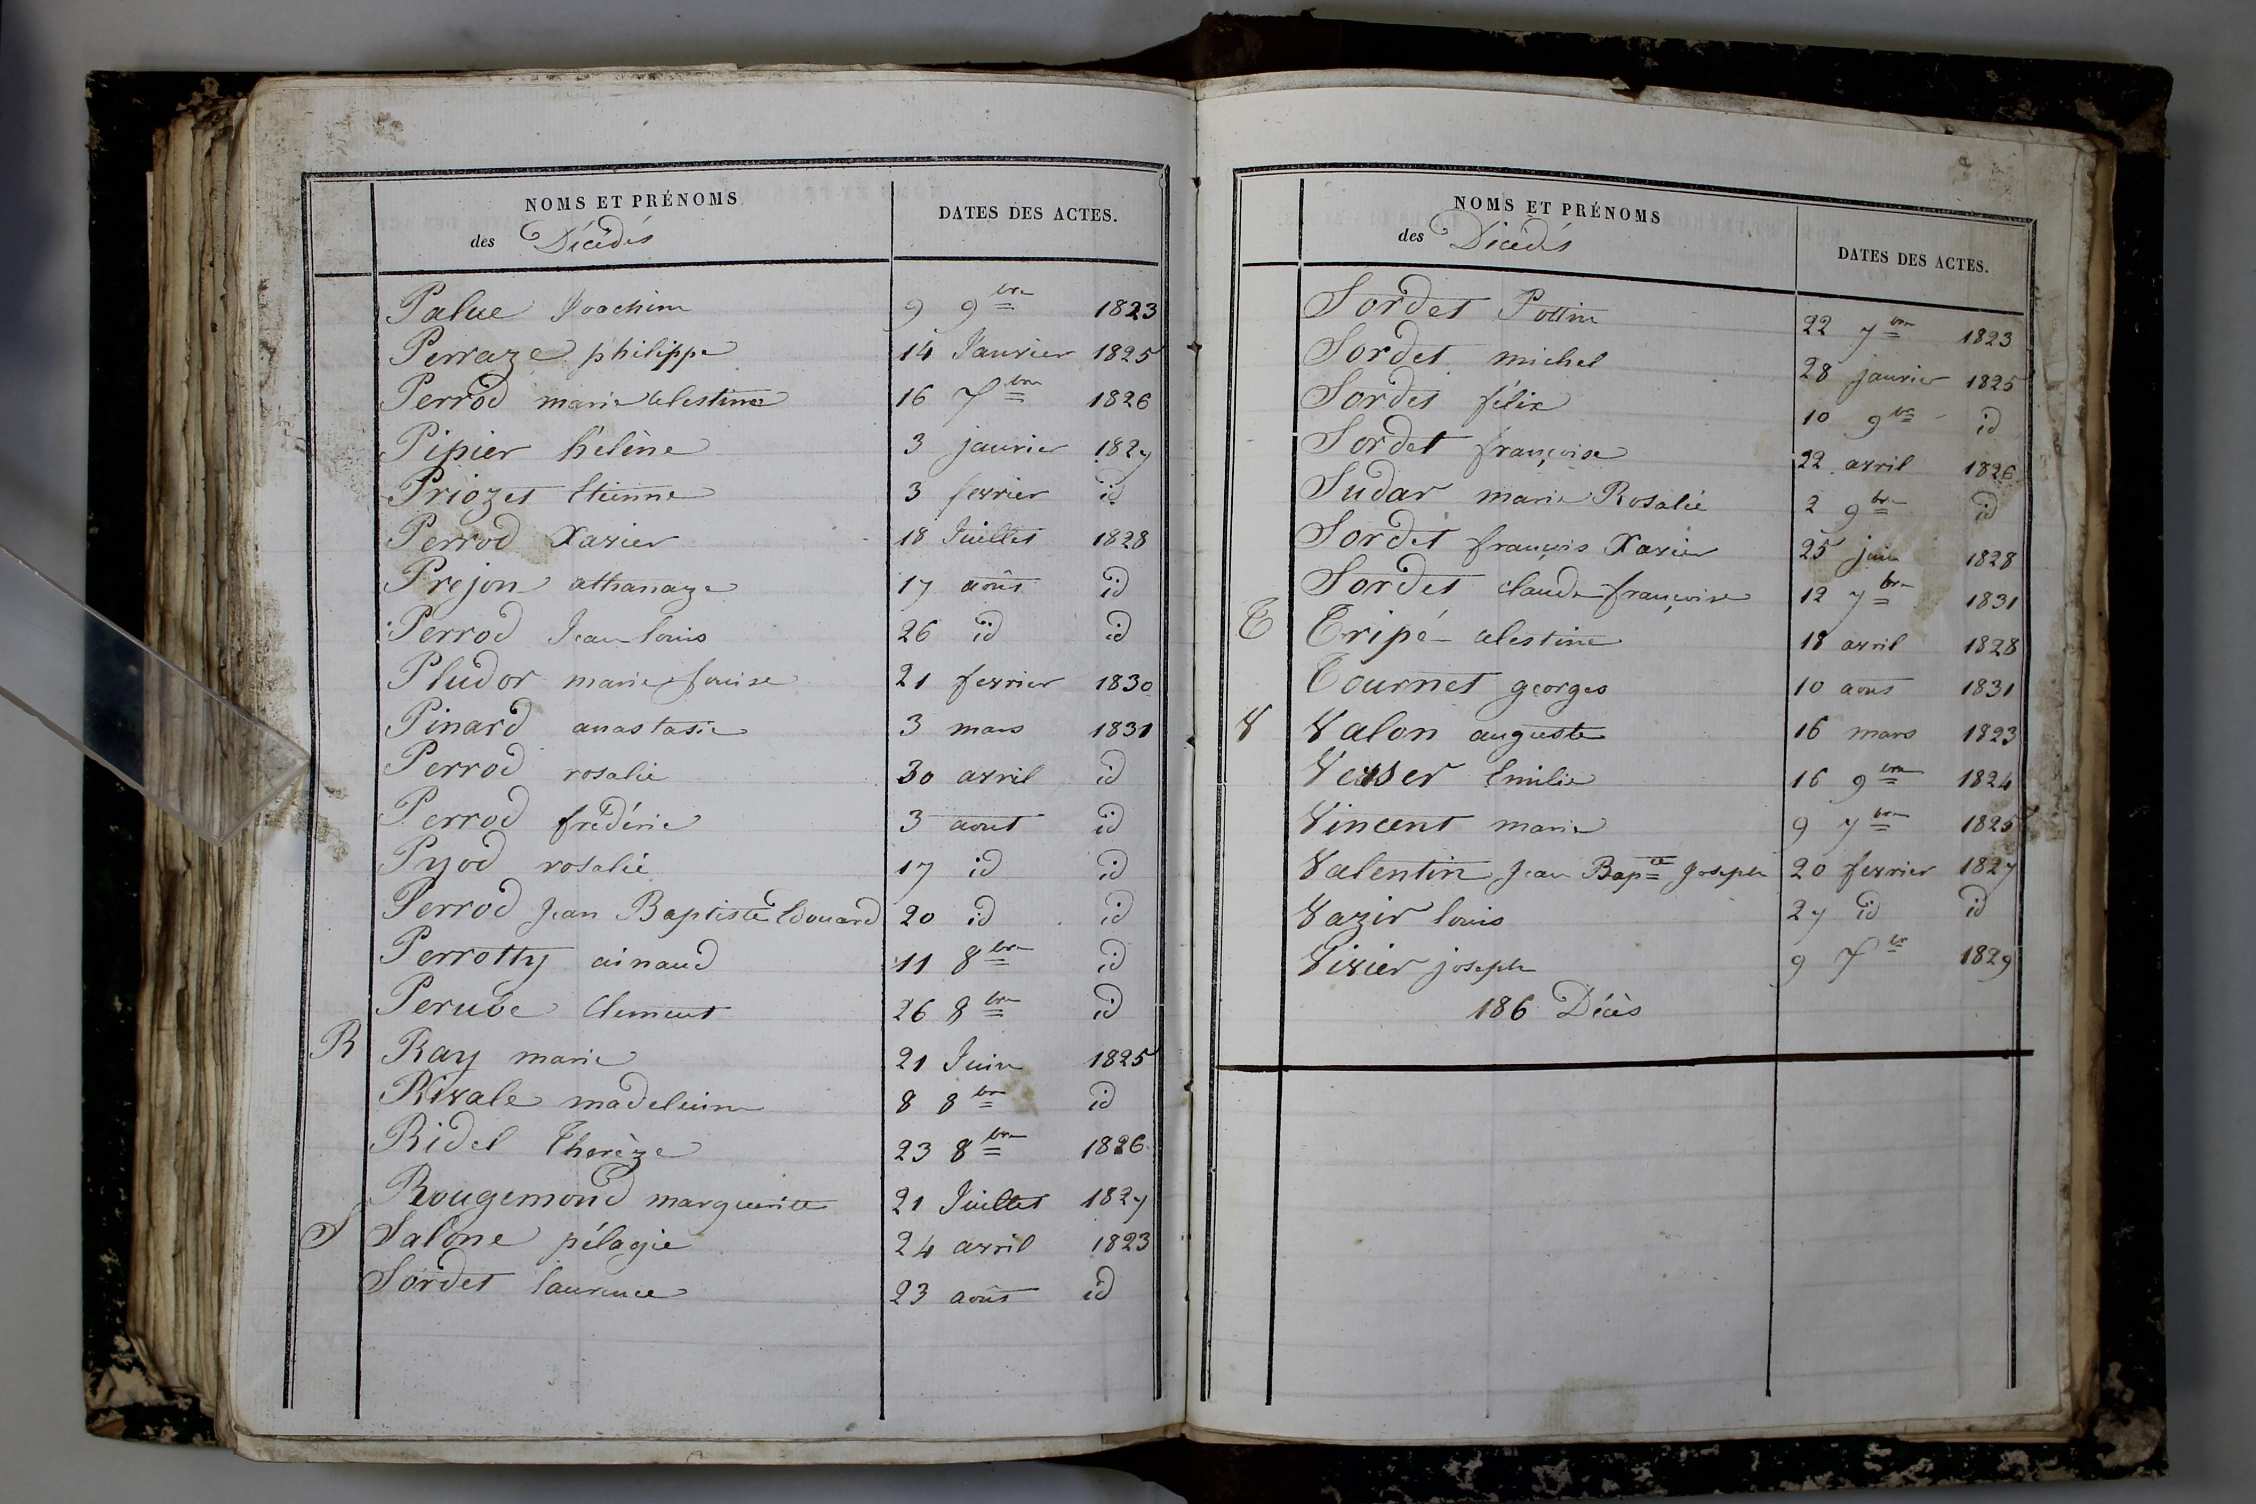 NOMS ET PRÉNOMS
des Décédés
DATES DES ACTES.
Palue Joachim 9 9bre 1823
Perraze philippe 14 Janvier 1825
Perrod marie celestine 16 7bre 1826
Pipier hélène 3 janvier 1827
Priozet Etienne 3 fevrier id
Perrod Xavier 18 Juillet 1828
Prejon athanaze 17 août id
Perrod Jean louis 26 id id
Pludor marie louise 21 fevrier 1830
Pinard anastasie 3 mars 1831
Perrod rosalie 30 avril id
Perrod frédéric 3 aout id
Pyod rosalie 17 id id
Perrod Jean Baptiste Edouard 20 id id
Perrotty ainaud 11 8bre id
Perube Clement 26 8bre id
R Ray marie 21 Juin 1825
Rivale madeleine 8 8bre id
Ridel Therèze 23 8bre 1826
Rougemond marguerite 21 Juillet 1827
S Salone pélagie 24 avril 1823
Sordet laurence 23 août id
NOMS ET PRÉNOMS
des Décédés
DATES DES ACTES.
Sordet Pottin 22 7bre 1823
Sordet michel 28 janvier 1825
Sordet félix 10 9bre id
Sordet françoise 22 avril 1826
Sudar marie Rosalie 2 9bre id
Sordet françois Xavier 25 juin 1828
Sordet claude françoise 12 7bre 1831
T Tripé celestine 18 avril 1828
Tournet georges 10 aout 1831
V Valon auguste 16 mars 1823
Veuser Emilie 16 9bre 1824
Vincent marie 9 7bre 1825
Valentin Jean Bapte Joseph 20 fevrier 1827
Vazir louis 27 id id
Vivier joseph 9 7br 1829
186 Décès